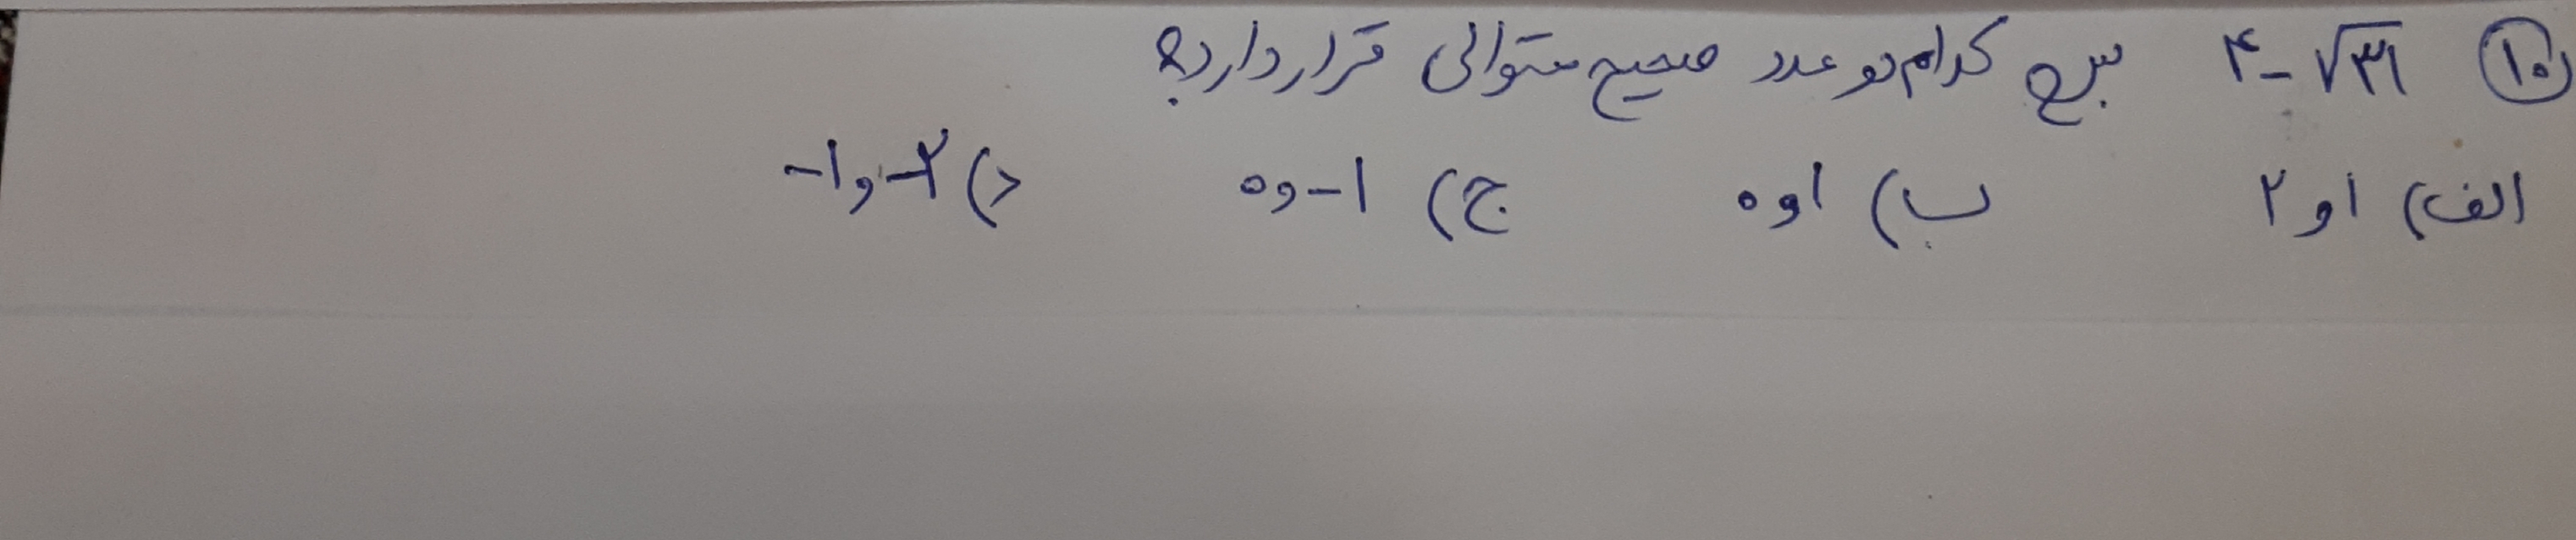 ۱۰) ۴-√۳۱ بین کدام دو عدد صحیح متوالی قرار دارد؟
الف) ۱ و ۲ ب) ۱ و ۰ ج) ۱- و ۰ د) ۲- و ۱-